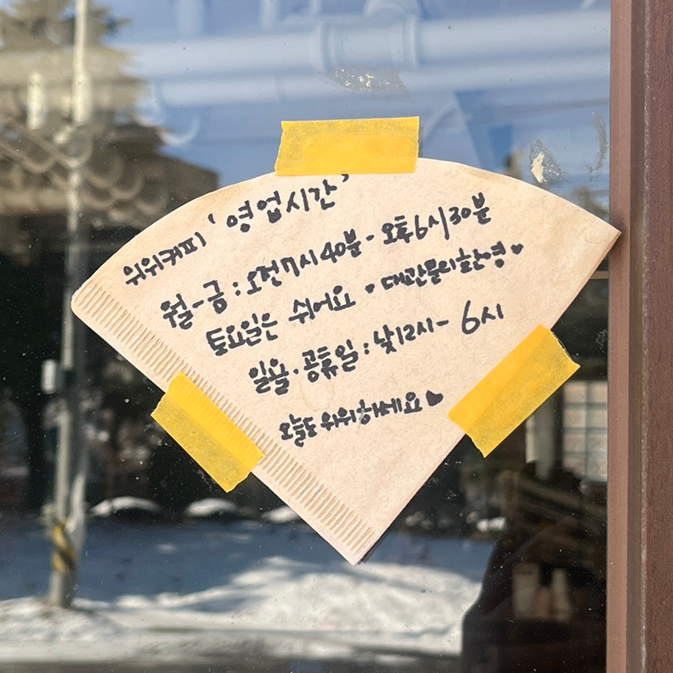 위위커피 '영업시간'
월-금 : 오전 7시 40분 - 오후 6시 30분
토요일은 쉬어요 • 대관문의환영♥
일욜·공휴일 : 낮 12시 - 6시
오늘도 위위하세요♥